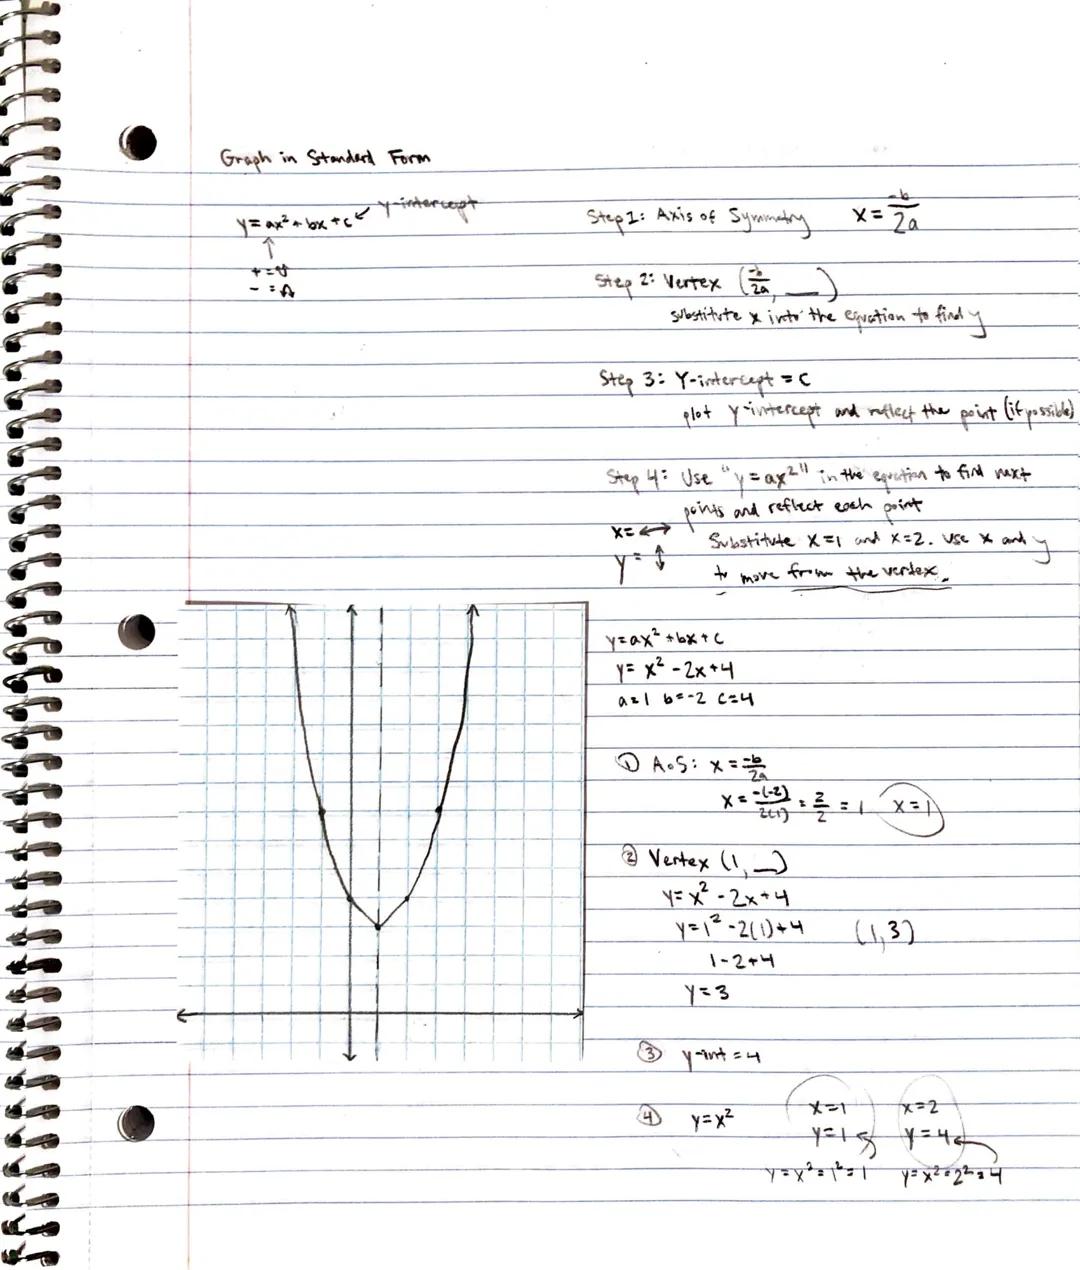 Graph in Standard Form
y=ax²+bx+c ← y-intercept
↑
+ = U
- = ∩
Step 1: Axis of Symmetry x = -b/2a
Step 2: Vertex (-b/2a, __)
substitute x into the equation to find y
Step 3: Y-intercept = C
plot y-intercept and reflect the point (if possible)
Step 4: Use "y=ax²" in the equation to find next
points and reflect each point
x= ↔
Substitute x=1 and x=2. Use x and y
y= ↕
to move from the vertex.
y=ax²+bx+c
y= x²-2x+4
a=1 b=-2 c=4
① AoS: x = -b/2a
x = -(-2)/2(1) = 2/2 = 1 x=1
② Vertex (1, __)
y=x²-2x+4
y=1²-2(1)+4 (1,3)
1-2+4
y=3
③ y-int=4
④ y=x² x=1 x=2
y=1 y=4
y=x²=1²=1 y=x²=2²=4